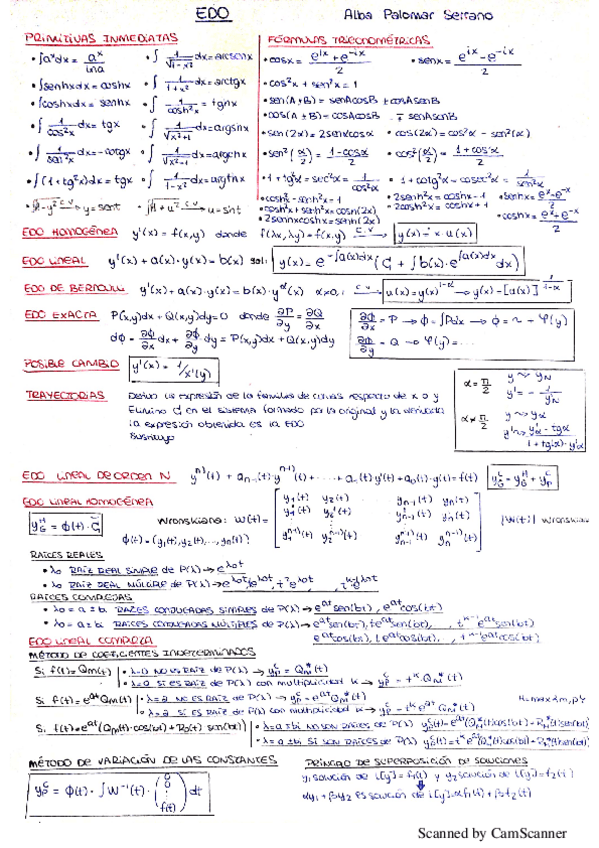 EDO Alba Palomar Serrano
PRIMITIVAS INMEDIATAS
• ∫a^x dx = a^x/lna • ∫ 1/√(1-x²) dx = arcsenx
• ∫senhxdx = coshx • ∫ 1/(1+x²) dx = arctgx
• ∫coshxdx = senhx • ∫ 1/cosh²x = tghx
• ∫ 1/cos²x dx = tgx • ∫ 1/√(x²+1) dx = argshx
• ∫ 1/sen²x dx = -cotgx
• ∫(1+tg²x)dx = tgx • ∫ 1/(1-x²) dx = argthx
FÓRMULAS TRIGONOMÉTRICAS
• cosx = (e^ix + e^-ix)/2 • senx = (e^ix - e^-ix)/2
• cos²x + sen²x = 1
• sen(A±B) = senAcosB ± cosAsenB
• cos(A±B) = cosAcosB ∓ senAsenB
• sen(2x) = 2senxcosx • cos(2x) = cos²x - sen²(x)
• 1+tg²x = sec²x = 1/cos²x • 1+cotg²x = cosec²x = 1/sen²x
• cosh²x - senh²x = 1
• cosh²x + senh²x = cosh(2x)
• 2senhxcoshx = senh(2x)
• senhx = (e^x - e^-x)/2
• coshx = (e^x + e^-x)/2
EDO HOMOGÉNEA y'(x) = f(x,y) donde f(λx, λy) = f(x,y) →c.v. y(x) = x·u(x)
EDO LINEAL y'(x) + a(x)·y(x) = b(x) sol: y(x) = e^-∫a(x)dx (C + ∫b(x)·e^∫a(x)dx dx)
EDO DE BERNOULLI y'(x) + a(x)·y(x) = b(x)·y^α(x) c.v. u(x) = y(x)^1-α → y(x) = [u(x)]^1/(1-α)
EDO EXACTA P(x,y)dx + Q(x,y)dy = 0 donde ∂P/∂y = ∂Q/∂x
dΦ = ∂Φ/∂x dx + ∂Φ/∂y dy = P(x,y)dx + Q(x,y)dy
∂Φ/∂x = P → Φ = ∫Pdx → Φ = ~ + φ(y)
∂Φ/∂y = Q → φ(y) = ...
POSIBLE CAMBIO y'(x) = 1/x'(y)
TRAYECTORIAS Derivo la expresión de la familia de curvas respecto de x o y
Elimino C en el sistema formado por la original y la derivada
la expresión obtenida es la EDO
Sustituyo
α = π/2 y → yN
y' = - 1/y'N
α ≠ π/2 y → yα
y' → (y'α - tgα)/(1+tg(α)·y'α)
EDO LINEAL DE ORDEN N y^n)(t) + a_n-1(t) y^n-1)(t) + ... + a₁(t) y'(t) + a₀(t)·y(t) = f(t)
EDO LINEAL HOMOGÉNEA
Wronskiana: W(t) = |W(t)| Wronskiano
y₁(t) y₂(t) y_n-1(t) y_n(t)
y₁'(t) y₂'(t) y'_n-1(t) y'_n(t)
Φ(t) = (y₁(t), y₂(t), ..., y_n(t))
RAÍCES REALES
• λ₀ RAÍZ REAL SIMPLE de P(λ) → e^λ₀t
• λ₀ RAÍZ REAL MÚLTIPLE de P(λ) → e^λ₀t, te^λ₀t, t²e^λ₀t, t^k-1 e^λ₀t
RAÍCES COMPLEJAS
• λ₀ = a ± bi RAÍCES CONJUGADAS SIMPLES de P(λ) → e^at sen(bt), e^at cos(bt)
• λ₀ = a ± bi RAÍCES CONJUGADAS MÚLTIPLES de P(λ) → e^at sen(bt), te^at sen(bt), ..., t^k-1 e^at sen(bt)
e^at cos(bt), te^at cos(bt), ..., t^k-1 e^at cos(bt)
EDO LINEAL COMPLETA
MÉTODO DE COEFICIENTES INDETERMINADOS
Si f(t) = Qm(t) • λ=0 NO ES RAÍZ de P(λ) → y = Qm*(t)
• λ=0 SI ES RAÍZ de P(λ) con multiplicidad k → y = t^k·Qm*(t)
Si f(t) = e^at Qm(t) • λ=a NO ES RAÍZ de P(λ) → y = e^at Qm*(t)
• λ=a SI ES RAÍZ de P(λ) con multiplicidad k → y = t^k e^at Qm*(t)
Si f(t) = e^at (Qm(t)·cos(bt) + Rp(t) sen(bt)) • λ=a±bi NO SON RAÍCES de P(λ)
• λ=a±bi SI SON RAÍCES de P(λ)
MÉTODO DE VARIACIÓN DE LAS CONSTANTES
PRINCIPIO DE SUPERPOSICIÓN DE SOLUCIONES
y₁ solución de L[y] = f₁(t) y y₂ solución de L[y] = f₂(t)
αy₁ + βy₂ es solución de L[y] = αf₁(t) + βf₂(t)
Scanned by CamScanner